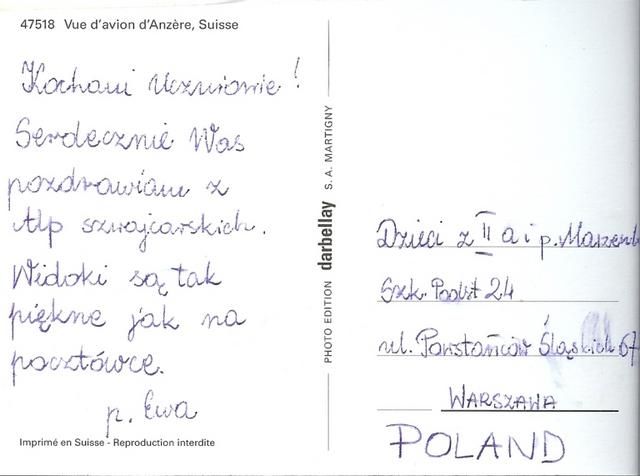 47518 Vue d'avion d'Anzère, Suisse
Kochani Uczniowie!
Serdecznie Was
pozdrawiam z
Alp szwajcarskich.
Widoki są tak
piękne jak na
pocztówce.
p. Ewa
Imprimé en Suisse - Reproduction interdite
PHOTO EDITION darbellay S. A. MARTIGNY
Dzieci z II a i p.
Szk. Podst 24
ul. Powstańców Śląskich 67
WARSZAWA
POLAND